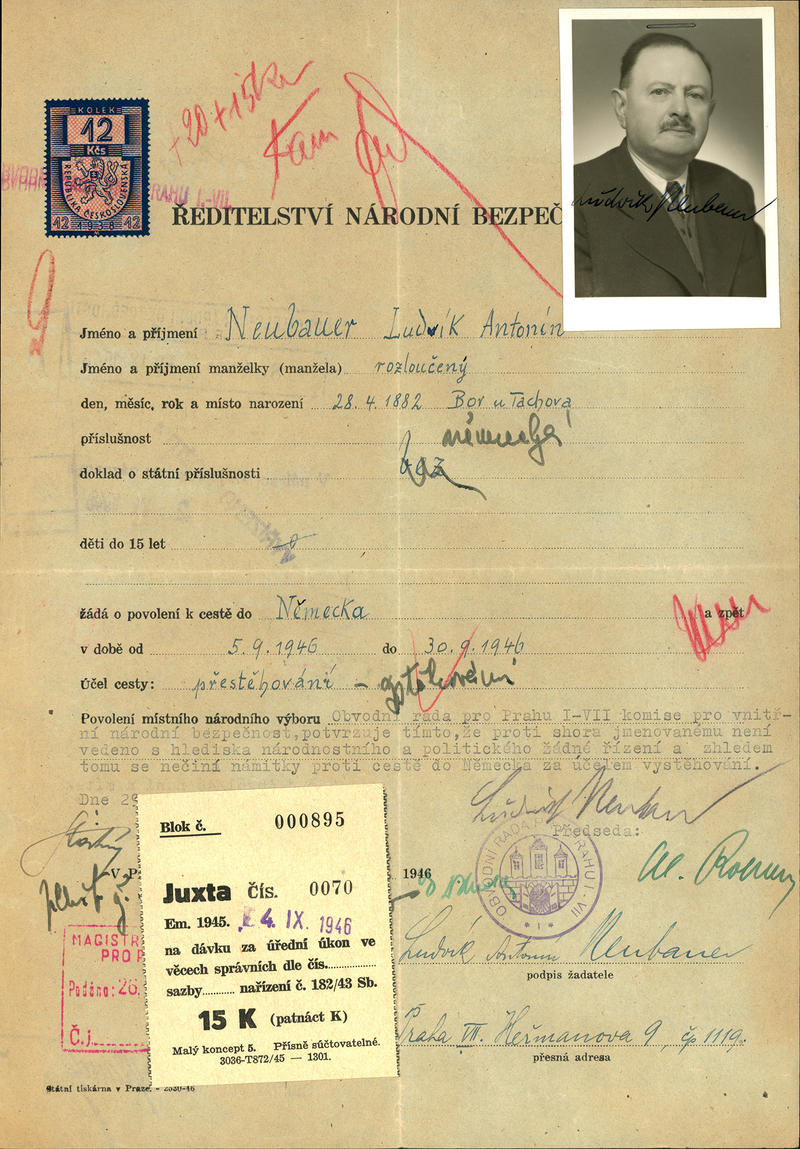 KOLEK
12
Kčs
REPUBLIKA ČESKOSLOVENSKÁ
12 1938 12
+20+15tka
RAHU I.-VII.
ŘEDITELSTVÍ NÁRODNÍ BEZPEČ
Ludvík Neubauer
Jméno a příjmení Neubauer Ludvík Antonín
Jméno a příjmení manželky (manžela) rozloučený
den, měsíc, rok a místo narození 28.4.1882 Bor u Tachova
příslušnost německá
doklad o státní příslušnosti
děti do 15 let
žádá o povolení k cestě do Německa a zpět
v době od 5.9.1946 do 30.9.1946
Účel cesty: přestěhování – vystěhování
Povolení místního národního výboru Obvodní rada pro Prahu I-VII komise pro vnitř-
ní národní bezpečnost,potvrzuje tímto,že proti shora jmenovanému není
vedeno s hlediska národnostního a politického žádné řízení a zhledem
tomu se nečiní námitky proti cestě do Německa za účelem vystěhování.
Dne 29
Ludvík Neubauer
Předseda:
V P
1946
OBVODNÍ RADA PRO PRAHU I.-VII
* I *
Blok č. 000895
Juxta čís. 0070
Em. 1945. 4. IX. 1946
na dávku za úřední úkon ve
věcech správních dle čís.
sazby nařízení č. 182/43 Sb.
15 K (patnáct K)
Malý koncept 5. Přísně súčtovatelné.
3036-T872/45 — 1301.
MAGISTR
PRO P
Podáno: 26.
Č.j.
Ludvík Antonín Neubauer
podpis žadatele
Praha VII. Heřmanova 9, čp 1119.
přesná adresa
Státní tiskárna v Praze. - 2530-46